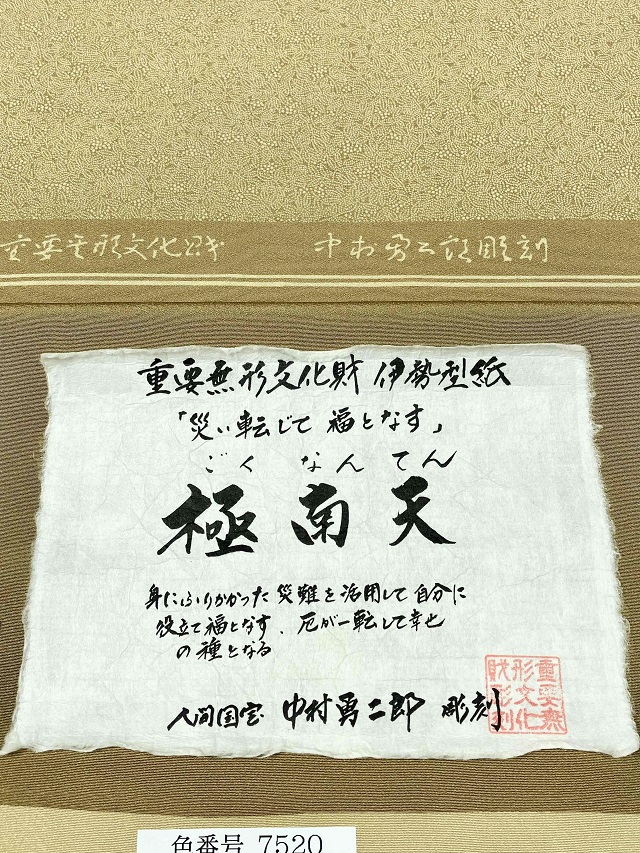 重要無形文化財 中村勇二郎彫刻
重要無形文化財 伊勢型紙
「災い転じて福となす」
ごく なんてん
極南天
身にふりかかった災難を活用して自分に
役立て福となす、厄が一転して幸せ
の種となる
人間国宝 中村勇二郎 彫刻
重要無
形文化
財彫刻
色番号 7520